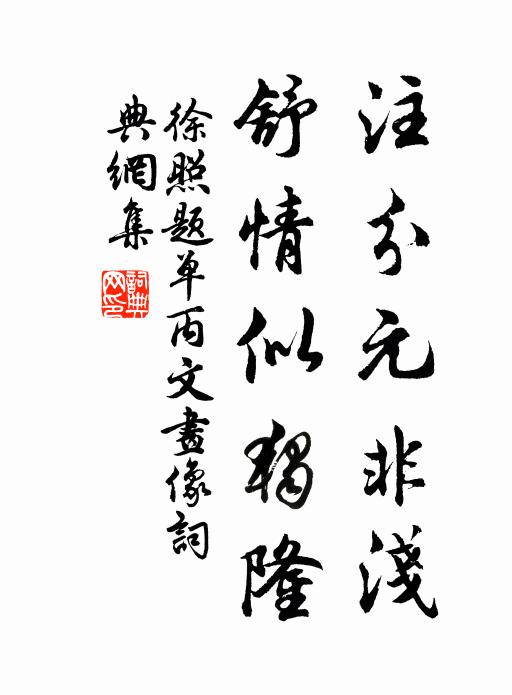 注分元非淺
舒情似獨隆
徐照題單丙文畫像詞
典網集
詞典
网印